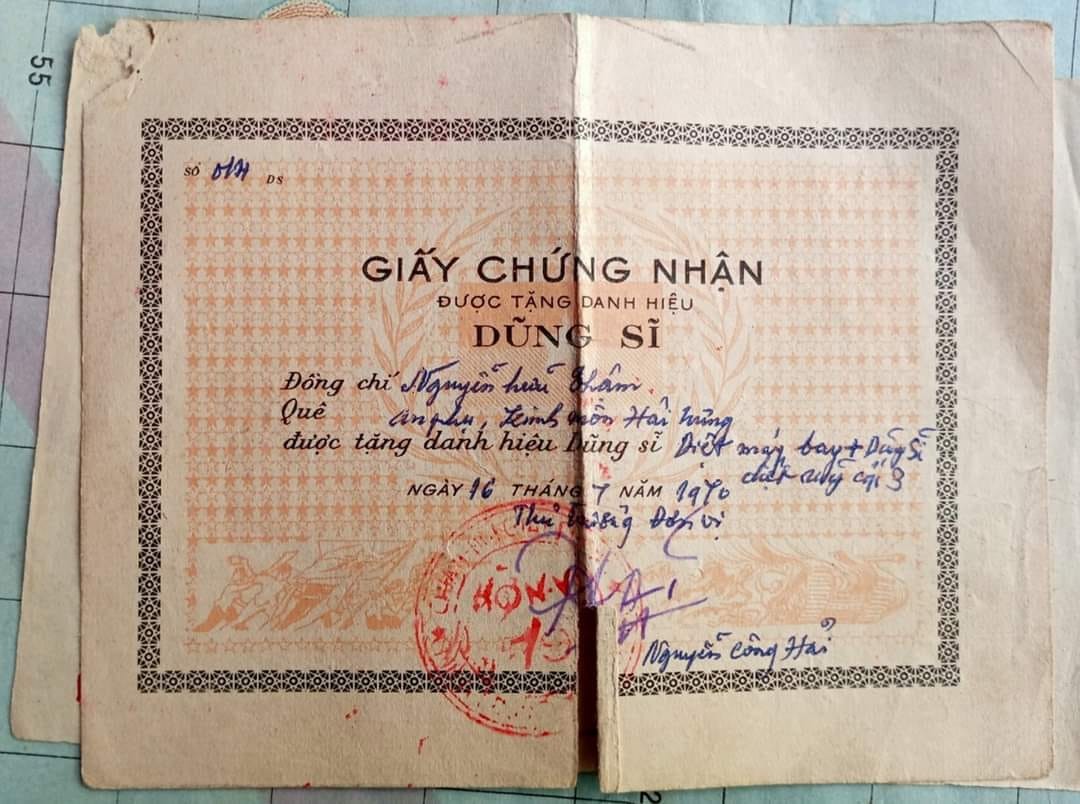 55
SỐ 014 DS
GIẤY CHỨNG NHẬN
ĐƯỢC TẶNG DANH HIỆU
DŨNG SĨ
Đồng chí Nguyễn hữu
Quê An phụ, Kinh môn Hải hưng
được tặng danh hiệu Dũng sĩ Diệt máy bay + Dũng sĩ
diệt cấp 3
NGÀY 16 THÁNG 7 NĂM 1970
Thủ trưởng Đơn vị
Nguyễn Công Hải
2